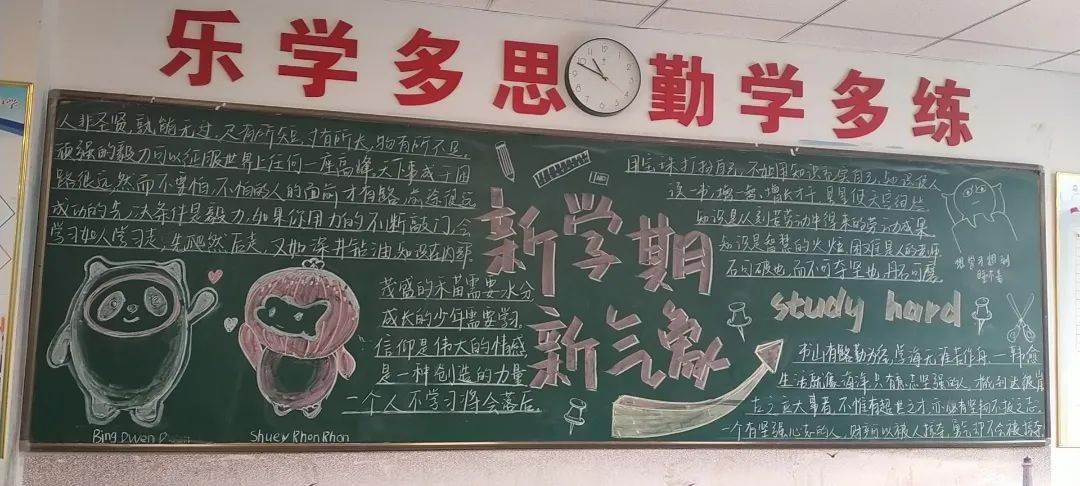 乐学多思 勤学多练
人非圣贤,孰能无过,尺有所短,寸有所长,物有所不足
顽强的毅力可以征服世界上任何一座高峰,天下事成于困
路很远,然而不要怕,不怕的人的面前才有路,前途很远
成功的务决条件是毅力,如果你用力的不断敲门,会
学习如人学习走,先爬然后走,又如深井能油,知识在内
茂盛的禾苗需要水分
成长的少年需要学习
信仰是伟大的情感
是一种创造的力量
一个人不学习将会落后
Bing Dwen
Shuey Rhon Rhon
新学期
新气象
用宝珠打扮自己,不如用知识充实自己,知识使人
读一书,增一智,增长才干
知识是从刻苦劳动中得来的劳动成果
知识是智慧的火炬,困难是人的老师
石可破也,而不可夺坚也,丹石可磨
想学习想到
睡不着
study hard
书山有路勤为径,学海无涯苦作舟——韩愈
生活就像海洋,只有意志坚强的人,才能到达彼岸
古之立大事者,不惟有超世之才,亦必有坚韧不拔之志
一个有坚强心志的人,财产可以被人掠夺,勇气却不会被掠夺